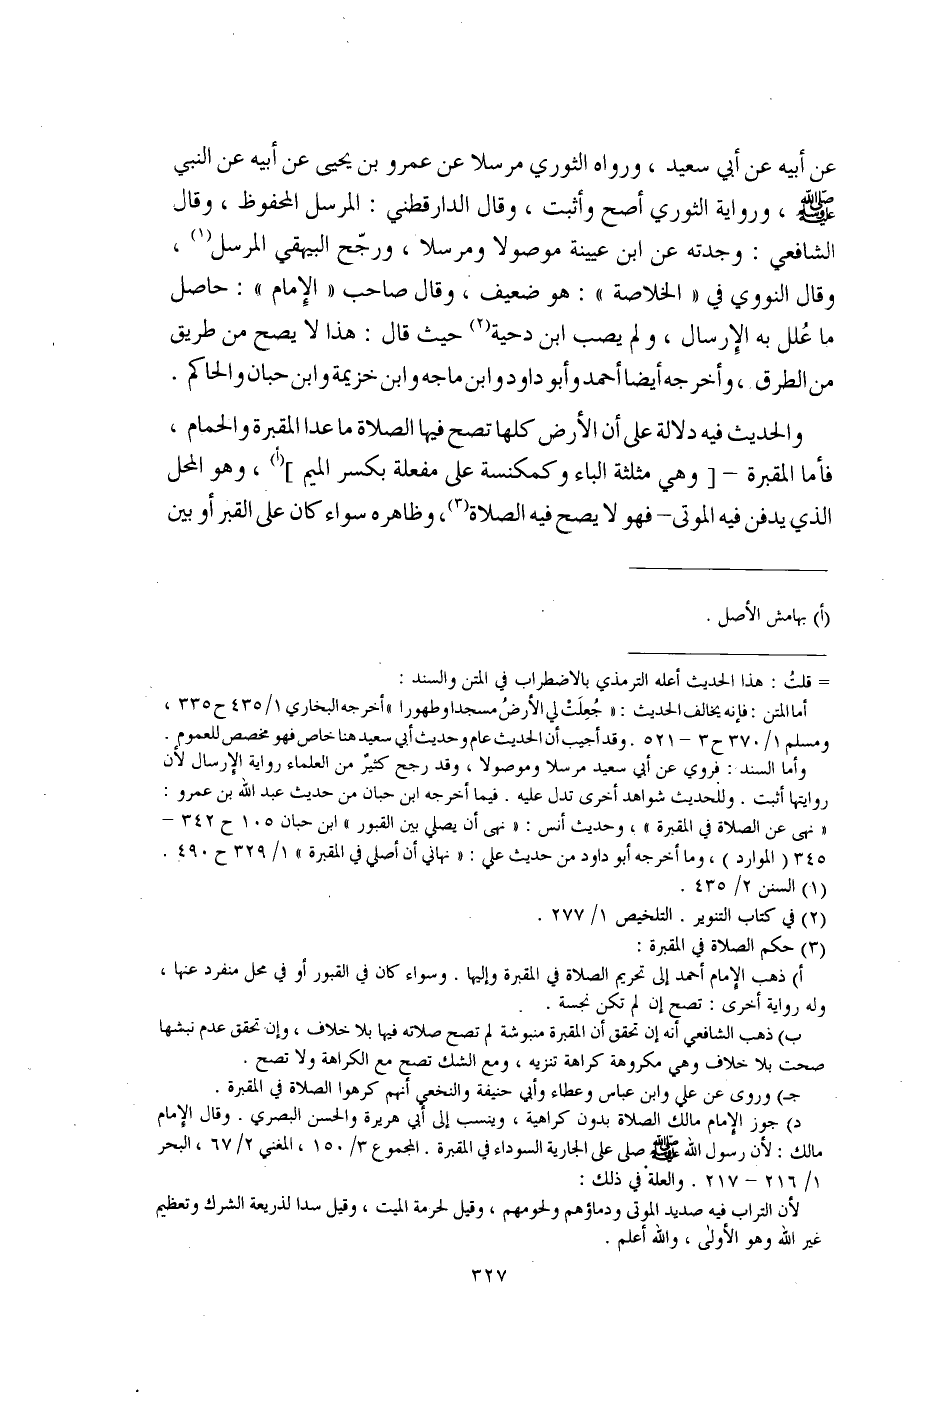 عن أبيه عن أبي سعيد ، ورواه الثوري مرسلا عن عمرو بن يحيى عن أبيه عن النبي
ﷺ ، ورواية الثوري أصح وأثبت ، وقال الدارقطني : المرسل المحفوظ ، وقال
الشافعي : وجدته عن ابن عيينة موصولا ومرسلا ، ورجّح البيهقي المرسل(١) ،
وقال النووي في « الخلاصة » : هو ضعيف ، وقال صاحب « الإمام » : حاصل
ما عُلل به الإرسال ، ولم يصب ابن دحية(٢) حيث قال : هذا لا يصح من طريق
من الطرق ، وأخرجه أيضا أحمد وأبو داود وابن ماجه وابن خزيمة وابن حبان والحاكم .
والحديث فيه دلالة على أن الأرض كلها تصح فيها الصلاة ما عدا المقبرة والحمام ،
فأما المقبرة – [ وهي مثلثة الباء وكمكنسة على مفعلة بكسر الميم ](أ) ، وهو المحل
الذي يدفن فيه الموتى – فهو لا يصح فيه الصلاة(٣) ، وظاهره سواء كان على القبر أو بين
(أ) بهامش الأصل .
= قلتُ : هذا الحديث أعله الترمذي بالاضطراب في المتن والسند :
أما المتن : فإنه يخالف الحديث : « جُعِلَتْ لي الأرضُ مسجدا وطهورا » أخرجه البخاري ١/ ٤٣٥ ح ٣٣٥ ،
ومسلم ١/ ٣٧٠ ح ٣ – ٥٢١ . وقد أجيب أن الحديث عام وحديث أبي سعيد هنا خاص فهو مخصص للعموم .
وأما السند : فروي عن أبي سعيد مرسلا وموصولا ، وقد رجح كثيرٌ من العلماء رواية الإرسال لأن
روايتها أثبت . وللحديث شواهد أخرى تدل عليه . فيما أخرجه ابن حبان من حديث عبد الله بن عمرو :
« نهى عن الصلاة في المقبرة » ، وحديث أنس : « نهى أن يصلي بين القبور » ابن حبان ١٠٥ ح ٣٤٢ –
٣٤٥ ( الموارد ) ، وما أخرجه أبو داود من حديث علي : « نهاني أن أصلي في المقبرة » ١/ ٣٢٩ ح ٤٩٠ .
(١) السنن ٢/ ٤٣٥ .
(٢) في كتاب التنوير . التلخيص ١/ ٢٧٧ .
(٣) حكم الصلاة في المقبرة :
أ) ذهب الإمام أحمد إلى تحريم الصلاة في المقبرة وإليها . وسواء كان في القبور أو في محل منفرد عنها ،
وله رواية أخرى : تصح إن لم تكن نجسة .
ب) ذهب الشافعي أنه إن تحقق أن المقبرة منبوشة لم تصح صلاته فيها بلا خلاف ، وإن تحقق عدم نبشها
صحت بلا خلاف وهي مكروهة كراهة تنزيه ، ومع الشك تصح مع الكراهة ولا تصح .
جـ) وروى عن علي وابن عباس وعطاء وأبي حنيفة والنخعي أنهم كرهوا الصلاة في المقبرة .
د) جوز الإمام مالك الصلاة بدون كراهية ، وينسب إلى أبي هريرة والحسن البصري . وقال الإمام
مالك : لأن رسول الله ﷺ صلى على الجارية السوداء في المقبرة . المجموع ٣/ ١٥٠ ، المغني ٢/ ٦٧ ، البحر
١/ ٢١٦ – ٢١٧ . والعلة في ذلك :
لأن التراب فيه صديد الموتى ودماؤهم ولحومهم ، وقيل لحرمة الميت ، وقيل سدا لذريعة الشرك وتعظيم
غير الله وهو الأولى ، والله أعلم .
٣٢٧